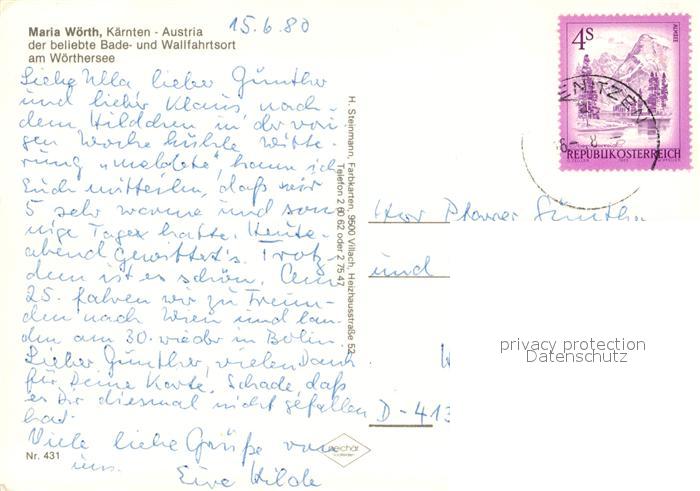 15.6.80
Maria Wörth, Kärnten - Austria
der beliebte Bade- und Wallfahrtsort
am Wörthersee
Liebe Ulla lieber Günther
und lieber Klaus, nach-
dem Hildchen in der vori-
gen Woche kühle Witte-
rung "meldete", kann ich
Euch mitteilen, daß wir
5 sehr warme und son-
nige Tage hatte. Heute
abend Gewittert's. Trotz-
dem ist es schön. Am
25. fahren wir zu Freun-
den nach Wien und lan-
den am 30. wieder in Berlin.
Lieber Günther, vielen Dank
für Deine Karte. Schade daß
es Dir diesmal nicht gefallen
hat.
Viele liebe Grüße von
uns.
Eure Hilde
Nr. 431
H. Steinmann, Farbkarten, 9500 Villach, Heizhausstraße 52,
Telefon 2 60 62 oder 2 75 47
4S
ALMSEE
REPUBLIK ÖSTERREICH
Pfarrer Günther
und
D-413
privacy protection
Datenschutz